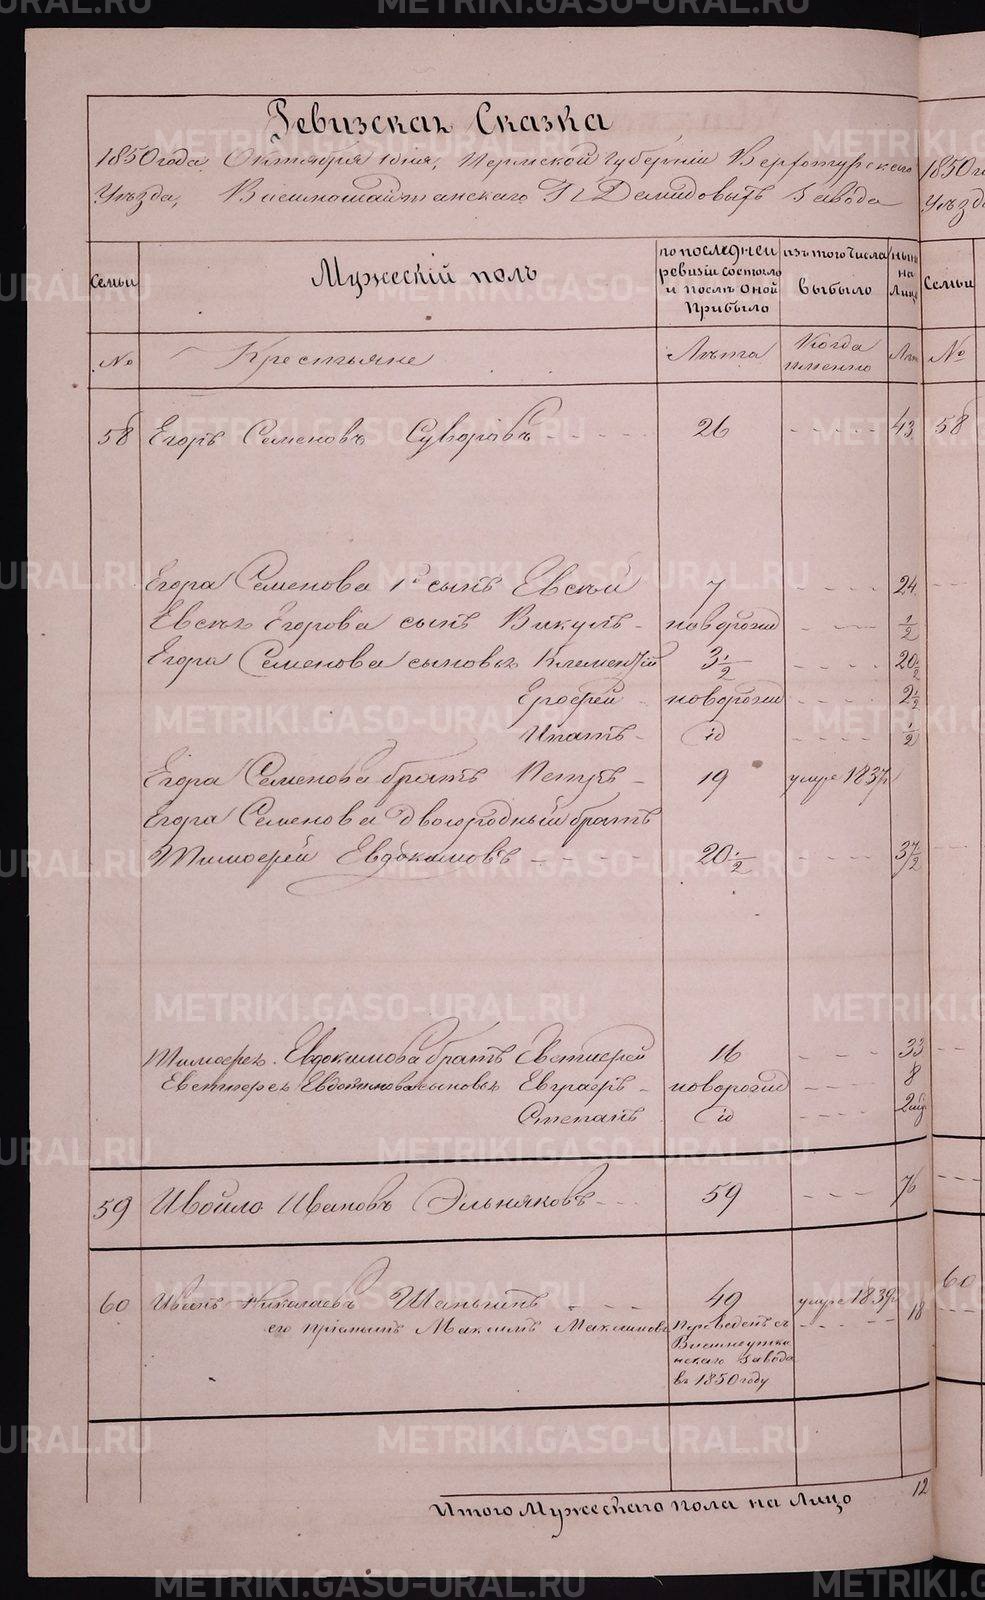 Ревизская Сказка
1850 года Октября дня, Пермской губернии Верхотурскаго
Уѣзда, Висимошайтанскаго Гг Демидовыхъ Завода
Семьи
Мужескій полъ
по последней
ревизіи состояло
и послѣ Оной
Прибыло
изъ того Числа
Выбыло
ныне
на
Лице
№
Крестьяне
Лѣта
Когда
именно
Лѣт
58 Егоръ Семеновъ Суворовъ 26 43
Егора Семенова 1й сынъ Евсѣй 7 24
Евсѣя Егорова сынъ Викулъ новорожд 1/2
Егора Семенова сыновья Клементій 3 1/2 20 1/2
Ерофей новорожд 2 1/2
Ипатъ id 1/2
Егора Семенова братъ Петръ 19 умре 1837
Егора Семенова двоюродный братъ
Тимофей Евдокимовъ 20 1/2 37 1/2
Тимофея Евдокимова братъ Евстифей 16 33
Евстифея Евдокимова сыновья Евграфъ новорожд 8
Степанъ id 2
59 Ивойло Ивановъ Эльняковъ 59 76
60 Иванъ Николаевъ Шаньгинъ 49 умре 1839
его пріемышъ Максимъ Максимовъ 18
Переведенъ съ
Висимоутки
нскаго Завода
въ 1850 году
Итого Мужескаго пола на Лицо 12
1850 г
Уѣзд
Семьи
№
58
60
METRIKI.GASO-URAL.RU